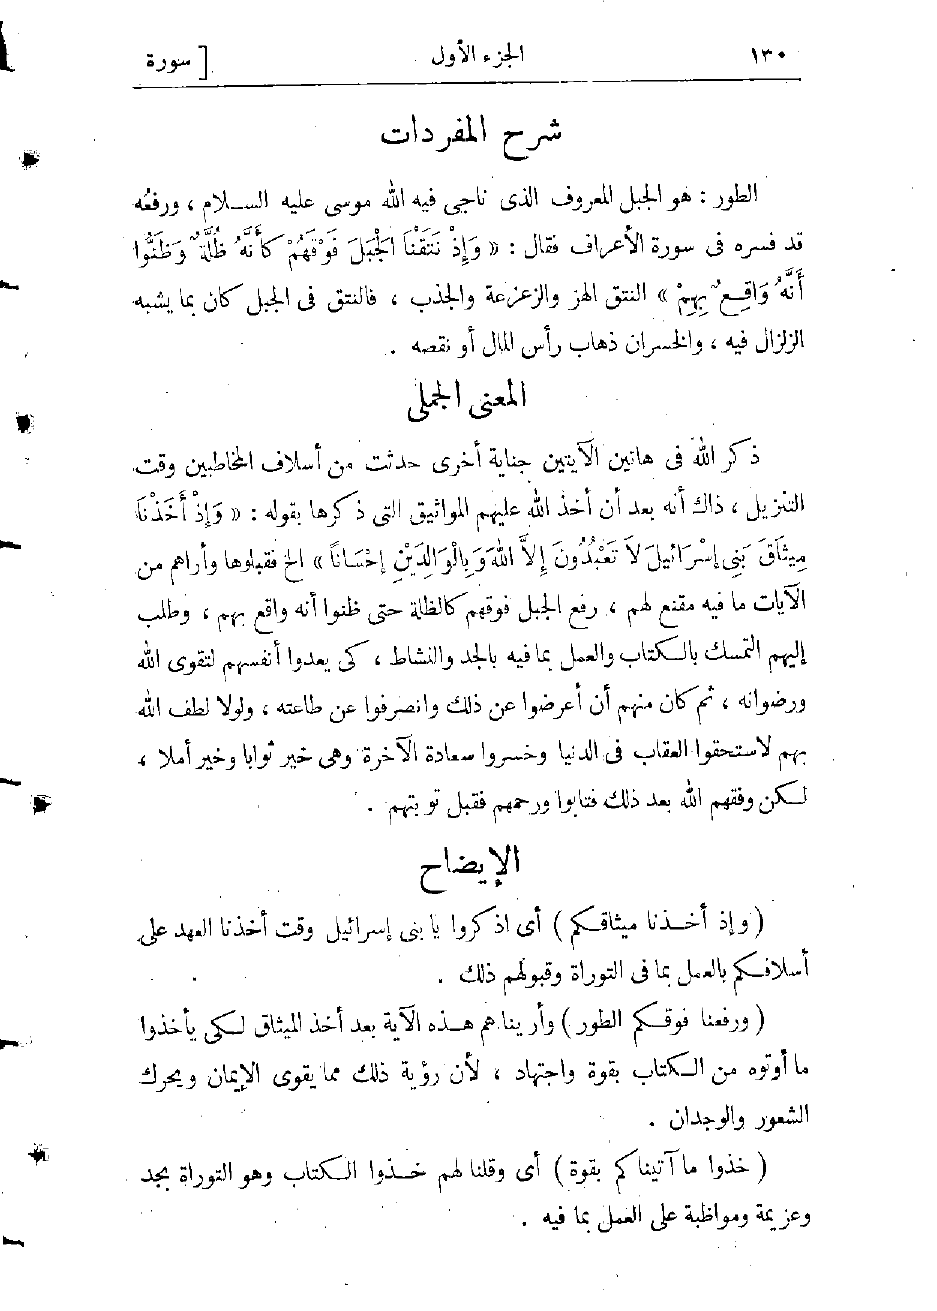 ١٣٠ الجزء الأول [ سورة
شرح المفردات
الطور : هو الجبل المعروف الذى ناجى فيه الله موسى عليه السلام ، ورفعُه
قد فسره فى سورة الأعراف فقال : « وَإِذْ نَتَقْنَا الْجَبَلَ فَوْقَهُمْ كَأَنَّهُ ظُلَّةٌ وَظَنُّوا
أَنَّهُ وَاقِعٌ بِهِمْ » النتق الهز والزعزعة والجذب ، فالنتق فى الجبل كان بما يشبه
الزلزال فيه ، والخسران ذهاب رأس المال أو نقصه .
المعنى الجملى
ذكر الله فى هاتين الآيتين جناية أخرى حدثت من أسلاف المخاطبين وقت
التنزيل ، ذاك أنه بعد أن أخذ الله عليهم المواثيق التى ذكرها بقوله : « وَإِذْ أَخَذْنَا
مِيثَاقَ بَنِى إسْرَائيلَ لاَ تَعْبُدُونَ إلاَّ اللهَ وَبِالْوَالِدَيْنِ إحْسَانًا » الخ فقبلوها وأراهم من
الآيات ما فيه مقنع لهم ، رفع الجبل فوقهم كالظلة حتى ظنوا أنه واقع بهم ، وطلب
إليهم التمسك بالكتاب والعمل بما فيه بالجد والنشاط ، كى يعدوا أنفسهم لتقوى الله
ورضوانه ، ثم كان منهم أن أعرضوا عن ذلك وانصرفوا عن طاعته ، ولولا لطف الله
بهم لاستحقوا العقاب فى الدنيا وخسروا سعادة الآخرة وهى خير ثوابا وخير أملا ،
لكن وفقهم الله بعد ذلك فتابوا ورحمهم فقبل توبتهم .
الإيضاح
( وإذ أخذنا ميثاقكم ) أى اذكروا يا بنى إسرائيل وقت أخذنا العهد على
أسلافكم بالعمل بما فى التوراة وقبولهم ذلك .
( ورفعنا فوقكم الطور ) وأريناهم هذه الآية بعد أخذ الميثاق لكى يأخذوا
ما أوتوه من الكتاب بقوة واجتهاد ، لأن رؤية ذلك مما يقوى الإيمان ويحرك
الشعور والوجدان .
( خذوا ما آتيناكم بقوة ) أى وقلنا لهم خذوا الكتاب وهو التوراة بجد
وعزيمة ومواظبة على العمل بما فيه .